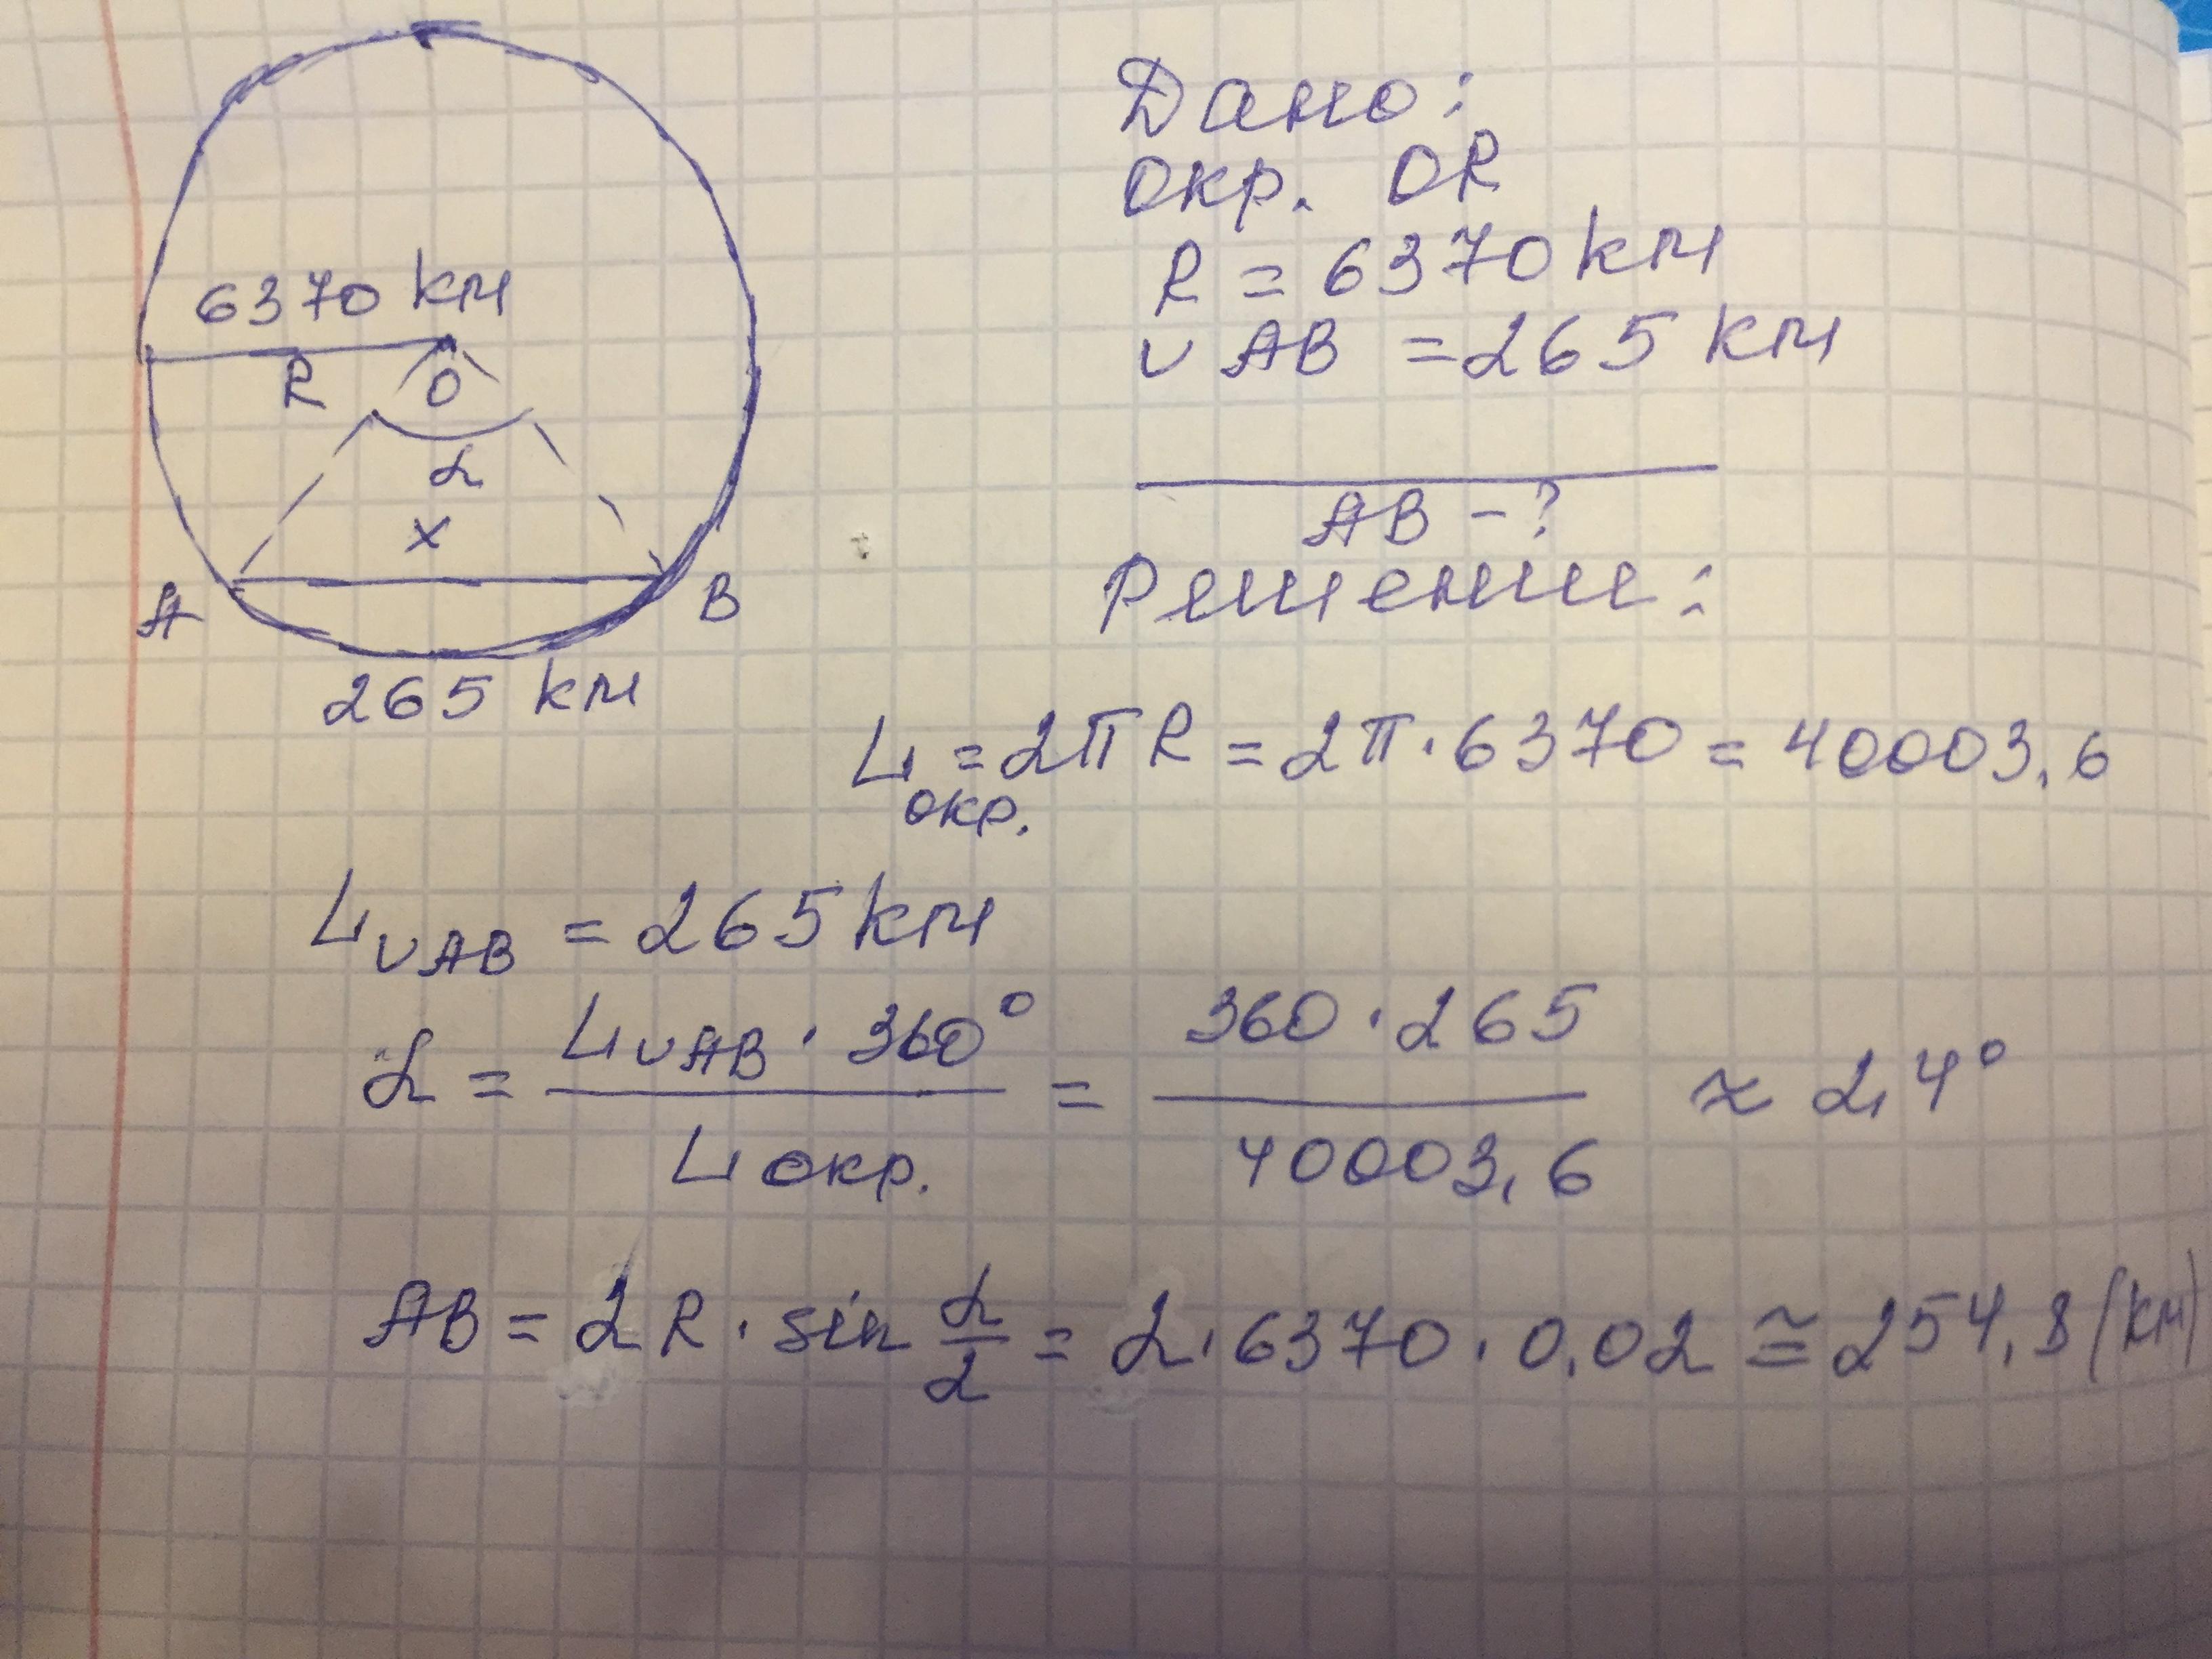 6370 км
R
O
α
x
A
B
265 км
Дано:
Окр. OR
R = 6370 км
∪ AB = 265 км
AB - ?
Решение:
L окр. = 2πR = 2π · 6370 = 40003,6
L ∪AB = 265 км
α = L ∪AB · 360° / L окр. = 360 · 265 / 40003,6 ≈ 2,4°
AB = 2R · sin α/2 = 2 · 6370 · 0,02 ≅ 254,8 (км)